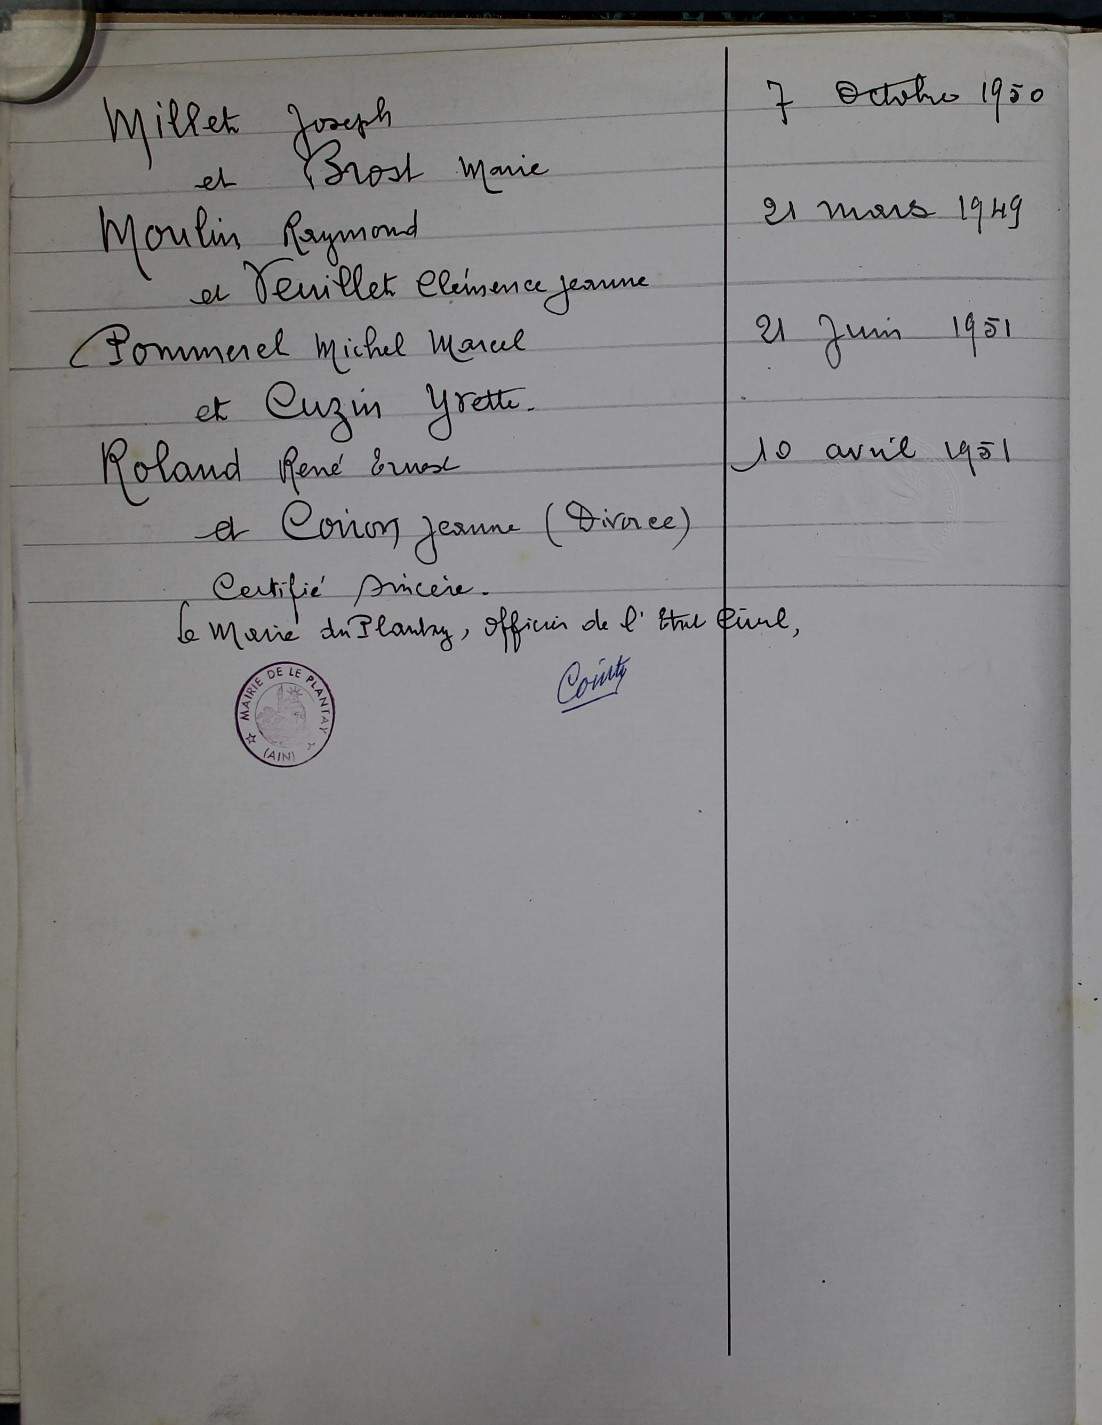 Millet Joseph 7 Octobre 1950
et Brost Marie
Moulin Raymond 21 mars 1949
et Veuillet Clémence Jeanne
Pommerel Michel Marcel 21 Juin 1951
et Cuzin Yvette.
Roland René Ernest 10 avril 1951
et Jeanne (Divorcee)
Certifié sincère.
Le Maire du Plantay, Officier de l'Etat Civil,
MAIRIE DE LE PLANTAY
(AIN)